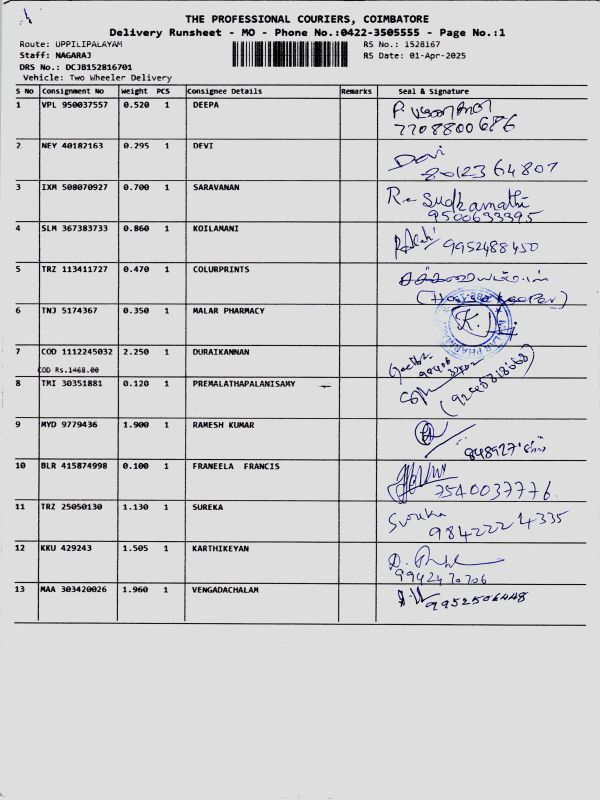 THE PROFESSIONAL COURIERS, COIMBATORE
Delivery Runsheet - MO - Phone No.:0422-3505555 - Page No.:1
Route: UPPILIPALAYAM RS No.: 1528167
Staff: NAGARAJ RS Date: 01-Apr-2025
DRS No.: DCJB152816701
Vehicle: Two Wheeler Delivery
S No Consignment No Weight PCS Consignee Details Remarks Seal & Signature
1 VPL 950037557 0.520 1 DEEPA
7708800686
2 NEY 40182163 0.295 1 DEVI Devi
3 IXM 508070927 0.700 1 SARAVANAN
9500633395
4 SLM 367383733 0.860 1 KOILAMANI 9952488450
5 TRZ 113411727 0.470 1 COLURPRINTS
6 TNJ 5174367 0.350 1 MALAR PHARMACY K.
7 COD 1112245032 2.250 1 DURAIKANNAN
COD Rs.1468.00
8 TMI 30351881 0.120 1 PREMALATHAPALANISAMY
9 MYD 9779436 1.900 1 RAMESH KUMAR
10 BLR 415874998 0.100 1 FRANEELA FRANCIS
7540037776.
11 TRZ 25050130 1.130 1 SUREKA Sureka
9842224335
12 KKU 429243 1.505 1 KARTHIKEYAN
9942470706
13 MAA 303420026 1.960 1 VENGADACHALAM 9952506448